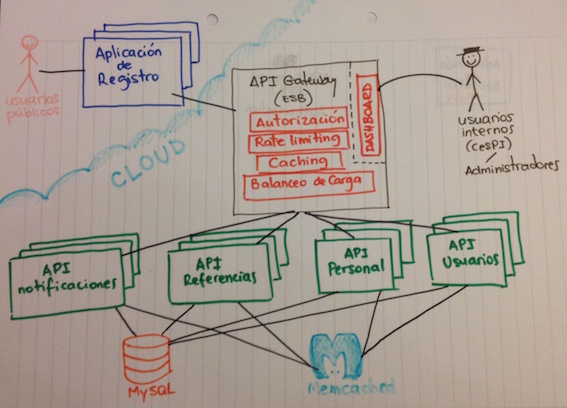 usuarios
públicos
Aplicación
de
Registro
CLOUD
API Gateway
(ESB)
Autorización
Rate limiting
Caching
Balanceo de Carga
DASHBOARD
usuarios
internos
(CeSPI)
Administradores
API
notificaciones
API
Referencias
API
Personal
API
Usuarios
MySQL
Memcached